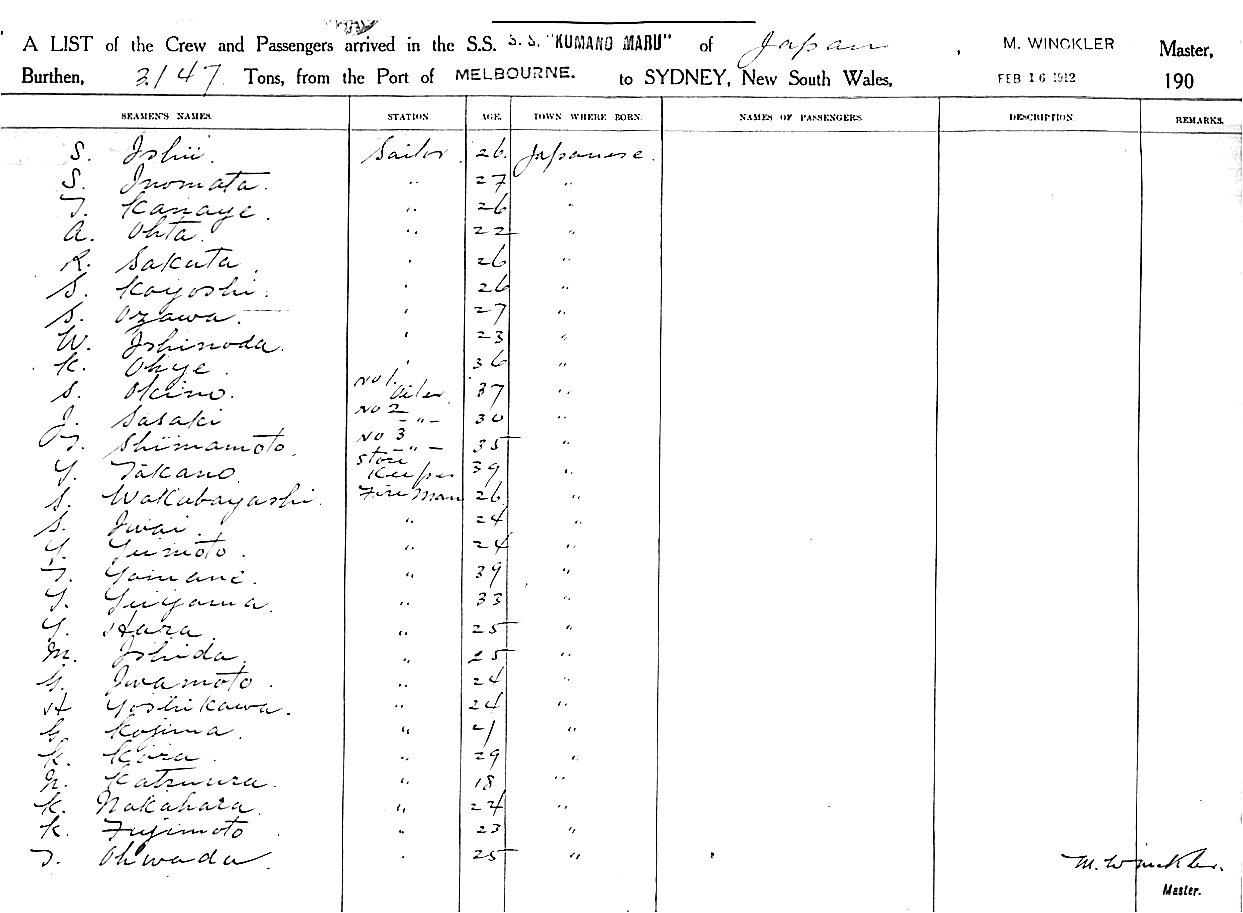 A LIST of the Crew and Passengers arrived in the S.S. S. S. "KUMANO MARU" of Japan, M. WINCKLER Master,
Burthen, 3147 Tons, from the Port of MELBOURNE. to SYDNEY, New South Wales, FEB 16 1912 190
SEAMEN'S NAMES. STATION. AGE. TOWN WHERE BORN. NAMES OF PASSENGERS. DESCRIPTION. REMARKS.
S. Ishii. Sailor. 26. Japanese.
S. Inomata. " 27 "
T. Kanaye. " 26 "
A. Ohta. " 22 "
R. Sakata. " 26 "
S. Koyoshi. " 26 "
S. Ozawa. " 27 "
W. Ishinoda. " 23 "
K. Ohye. " 36 "
S. Okino. No 1. Oiler. 37 "
J. Sasaki No 2 -"- 30 "
T. Shiimamoto. No 3 -"- 35 "
Y. Takano. Store Keeper 39 "
S. Wakabayashi. Fire Man 26 "
S. Iwai. " 24 "
Y. Yumoto. " 24 "
T. Yamane. " 39 "
Y. " 33 "
Y. Hara. " 25 "
M. Ishida. " 25 "
G. Iwamoto. " 24 "
H Yoshikawa. " 24 "
G. Kojima. " 21 "
K. Kora. " 29 "
N. Katsuura. " 18 "
K. Nakahara. " 24 "
K. Fujimoto. " 23 "
T. Ohwada. " 25 "
M. Winckler.
Master.